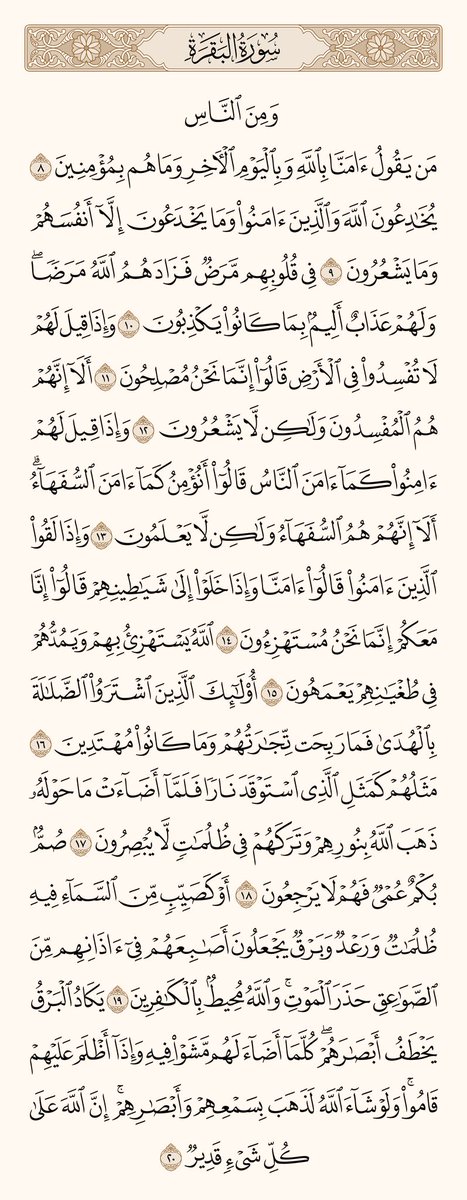 سُورَةُ الْبَقَرَةِ
وَمِنَ ٱلنَّاسِ
مَن يَقُولُ ءَامَنَّا بِٱللَّهِ وَبِٱلْيَوْمِ ٱلْأَخِرِ وَمَا هُم بِمُؤْمِنِينَ ٨
يُخَٰدِعُونَ ٱللَّهَ وَٱلَّذِينَ ءَامَنُوا۟ وَمَا يَخْدَعُونَ إِلَّآ أَنفُسَهُمْ
وَمَا يَشْعُرُونَ ٩ فِى قُلُوبِهِم مَّرَضٌ فَزَادَهُمُ ٱللَّهُ مَرَضًا ۖ
وَلَهُمْ عَذَابٌ أَلِيمٌۢ بِمَا كَانُوا۟ يَكْذِبُونَ ١٠ وَإِذَا قِيلَ لَهُمْ
لَا تُفْسِدُوا۟ فِى ٱلْأَرْضِ قَالُوٓا۟ إِنَّمَا نَحْنُ مُصْلِحُونَ ١١ أَلَآ إِنَّهُمْ
هُمُ ٱلْمُفْسِدُونَ وَلَٰكِن لَّا يَشْعُرُونَ ١٢ وَإِذَا قِيلَ لَهُمْ
ءَامِنُوا۟ كَمَآ ءَامَنَ ٱلنَّاسُ قَالُوٓا۟ أَنُؤْمِنُ كَمَآ ءَامَنَ ٱلسُّفَهَآءُ ۗ
أَلَآ إِنَّهُمْ هُمُ ٱلسُّفَهَآءُ وَلَٰكِن لَّا يَعْلَمُونَ ١٣ وَإِذَا لَقُوا۟
ٱلَّذِينَ ءَامَنُوا۟ قَالُوٓا۟ ءَامَنَّا وَإِذَا خَلَوْا۟ إِلَىٰ شَيَٰطِينِهِمْ قَالُوٓا۟ إِنَّا
مَعَكُمْ إِنَّمَا نَحْنُ مُسْتَهْزِءُونَ ١٤ ٱللَّهُ يَسْتَهْزِئُ بِهِمْ وَيَمُدُّهُمْ
فِى طُغْيَٰنِهِمْ يَعْمَهُونَ ١٥ أُو۟لَٰٓئِكَ ٱلَّذِينَ ٱشْتَرَوُا۟ ٱلضَّلَٰلَةَ
بِٱلْهُدَىٰ فَمَا رَبِحَت تِّجَٰرَتُهُمْ وَمَا كَانُوا۟ مُهْتَدِينَ ١٦
مَثَلُهُمْ كَمَثَلِ ٱلَّذِى ٱسْتَوْقَدَ نَارًا فَلَمَّآ أَضَآءَتْ مَا حَوْلَهُۥ
ذَهَبَ ٱللَّهُ بِنُورِهِمْ وَتَرَكَهُمْ فِى ظُلُمَٰتٍ لَّا يُبْصِرُونَ ١٧ صُمٌّۢ
بُكْمٌ عُمْىٌ فَهُمْ لَا يَرْجِعُونَ ١٨ أَوْ كَصَيِّبٍ مِّنَ ٱلسَّمَآءِ فِيهِ
ظُلُمَٰتٌ وَرَعْدٌ وَبَرْقٌ يَجْعَلُونَ أَصَٰبِعَهُمْ فِىٓ ءَاذَانِهِم مِّنَ
ٱلصَّوَٰعِقِ حَذَرَ ٱلْمَوْتِ ۚ وَٱللَّهُ مُحِيطٌۢ بِٱلْكَٰفِرِينَ ١٩ يَكَادُ ٱلْبَرْقُ
يَخْطَفُ أَبْصَٰرَهُمْ ۖ كُلَّمَآ أَضَآءَ لَهُم مَّشَوْا۟ فِيهِ وَإِذَآ أَظْلَمَ عَلَيْهِمْ
قَامُوا۟ ۚ وَلَوْ شَآءَ ٱللَّهُ لَذَهَبَ بِسَمْعِهِمْ وَأَبْصَٰرِهِمْ ۚ إِنَّ ٱللَّهَ عَلَىٰ
كُلِّ شَىْءٍ قَدِيرٌ ٢٠